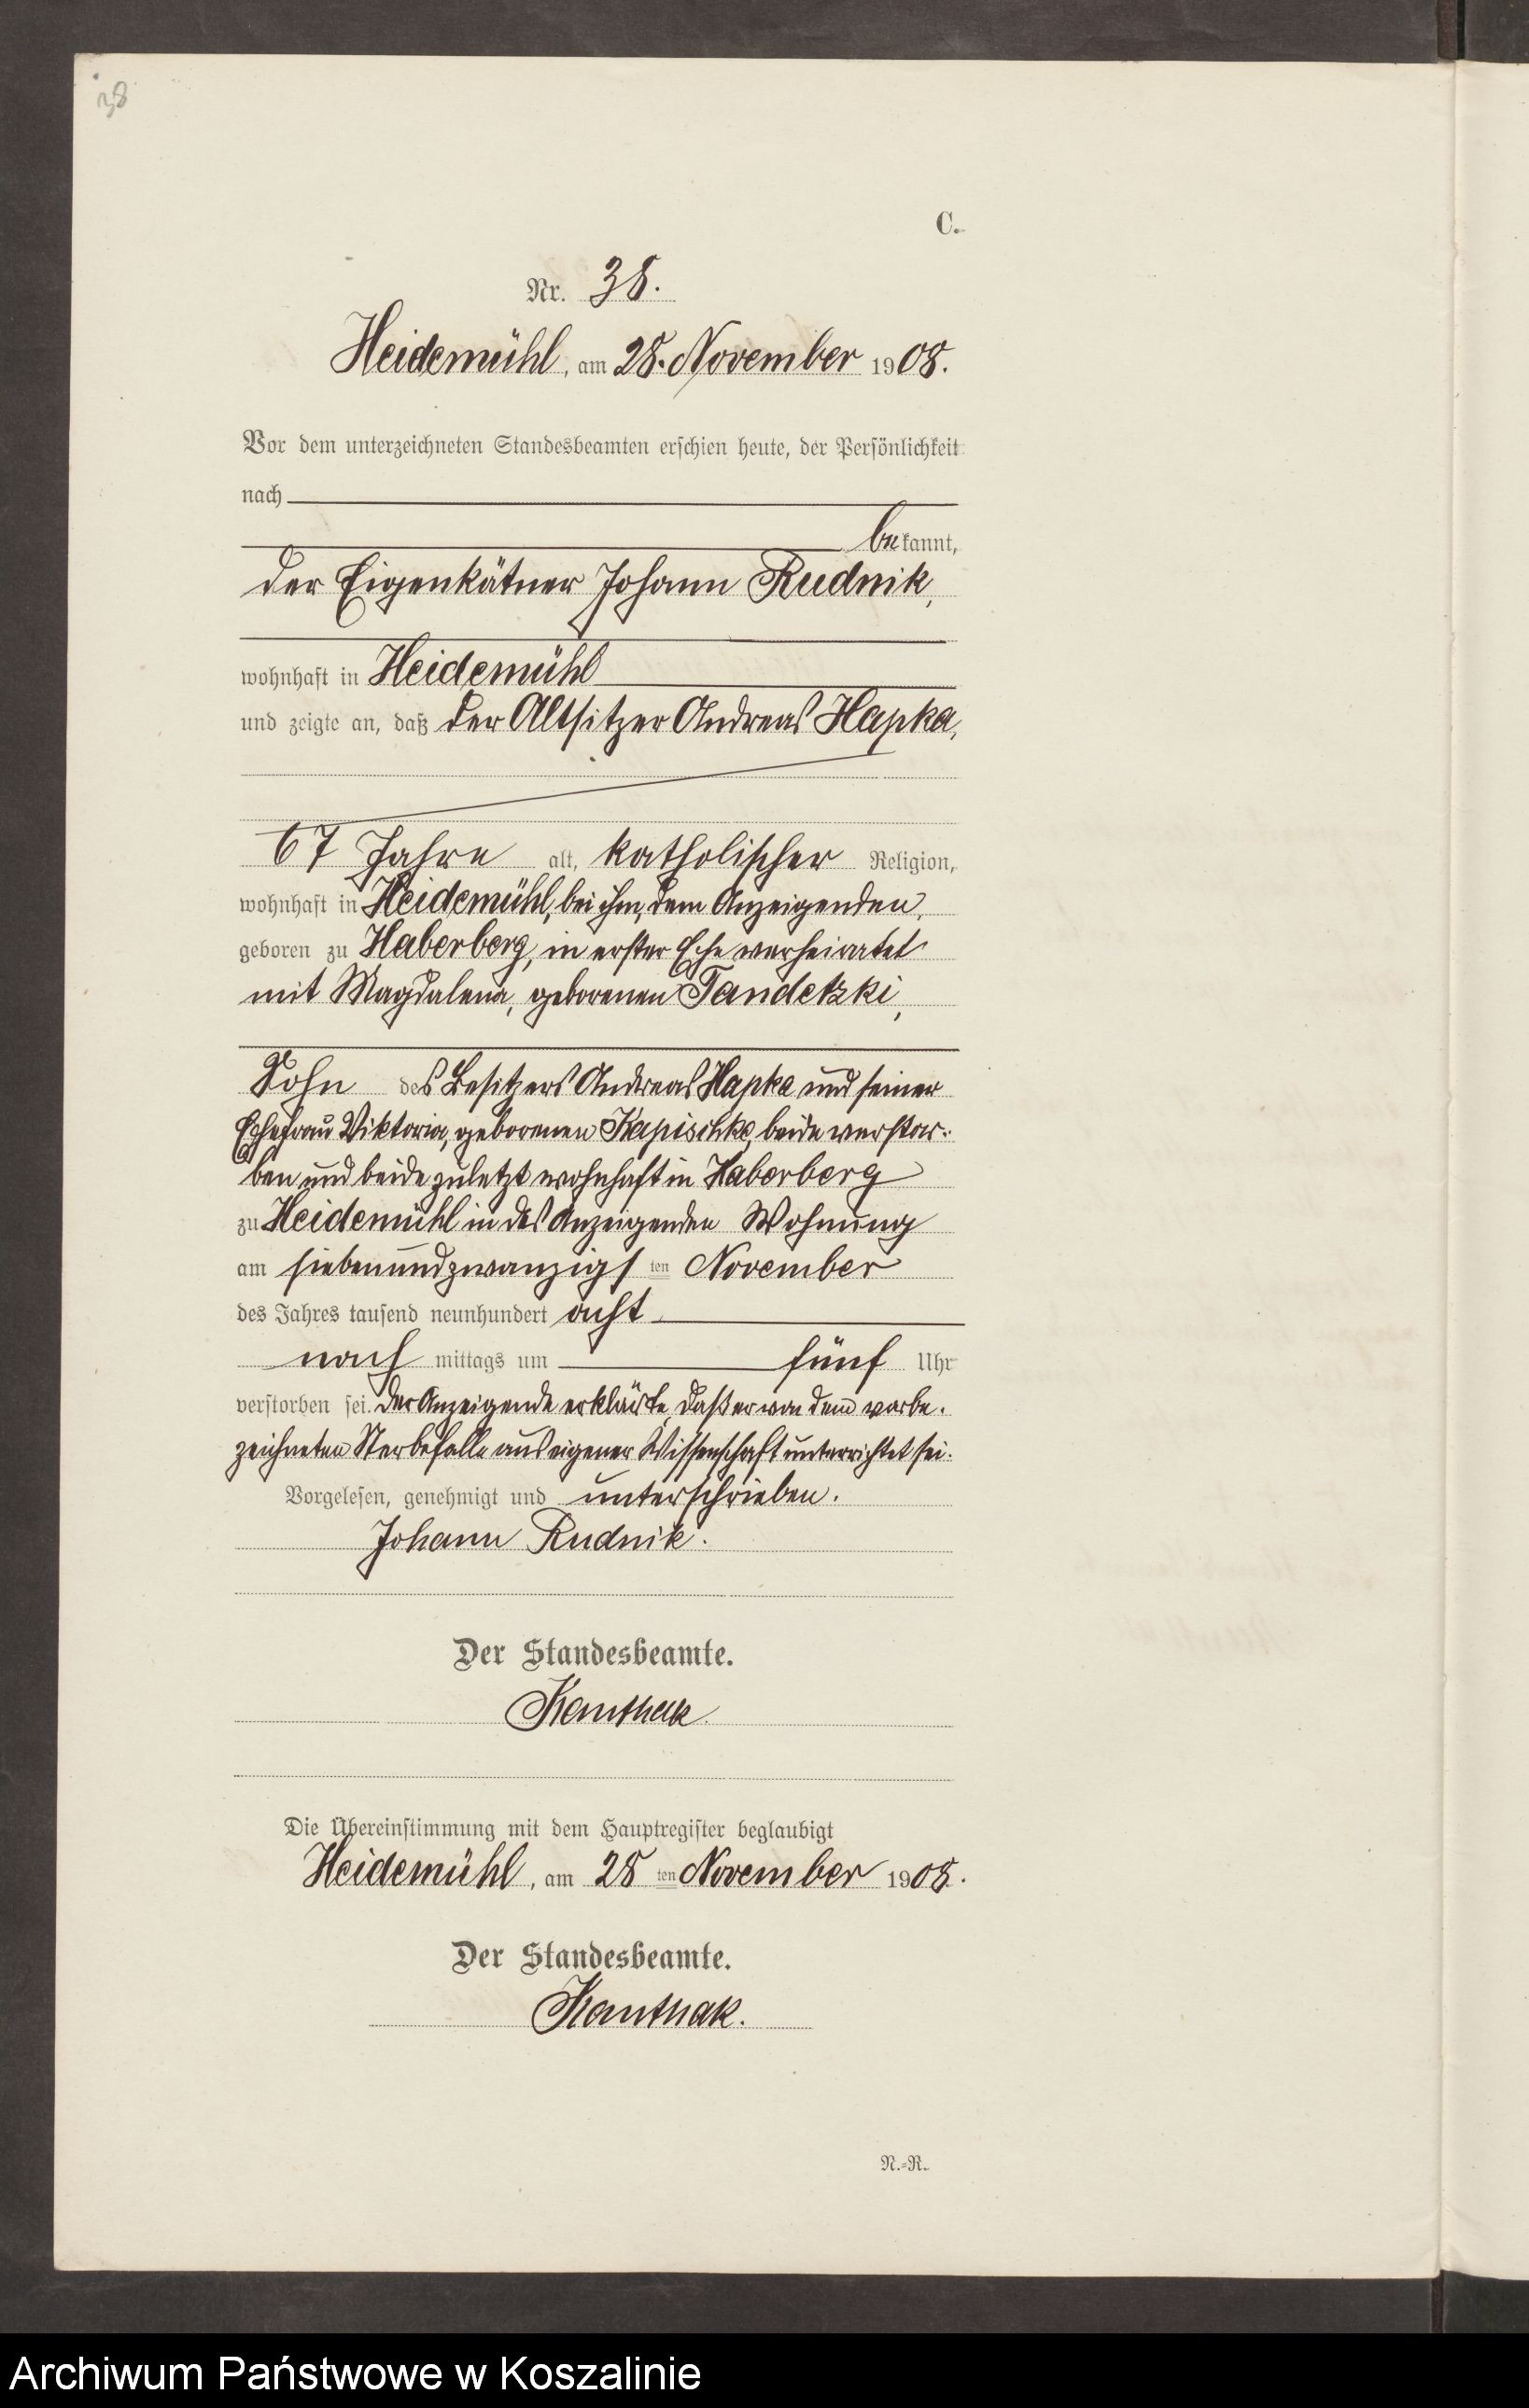 38
C.
Nr. 38.
Heidemühl, am 28. November 1908.
Vor dem unterzeichneten Standesbeamten erschien heute, der Persönlichkeit
nach
bekannt,
der Eigenkätner Johann Rudnik,
wohnhaft in Heidemühl
und zeigte an, daß der Altsitzer Andreas Hapka,
67 Jahre alt, katholischer Religion,
wohnhaft in Heidemühl, bei ihm, dem Anzeigenden,
geboren zu Haberberg, in erster Ehe verheiratet
mit Magdalena, geborenen Tandetzki,
Sohn des Besitzers Andreas Hapka und seiner
Ehefrau Viktoria, geborenen Kapischke, beide verstor-
ben und beide zuletzt wohnhaft in Haberberg
zu Heidemühl in des Anzeigenden Wohnung
am siebenundzwanzigsten November
des Jahres tausend neunhundert acht
nachmittags um fünf Uhr
verstorben sei. Der Anzeigende erklärte, daß er von dem vorbe-
zeichneten Sterbefalle aus eigener Wissenschaft unterrichtet sei.
Vorgelesen, genehmigt und unterschrieben.
Johann Rudnik.
Der Standesbeamte.
Kanthak.
Die Übereinstimmung mit dem Hauptregister beglaubigt
Heidemühl, am 28ten November 1908.
Der Standesbeamte.
Kanthak.
N.=R.
Archiwum Państwowe w Koszalinie